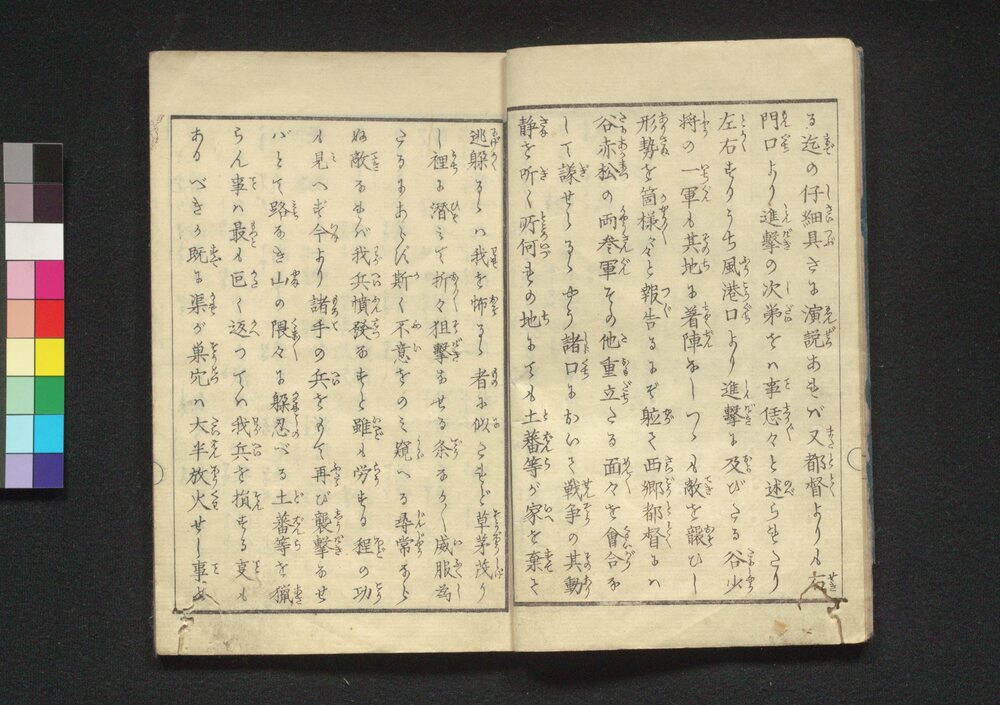 る迄の仔細具さに演説あれば又都督よりも石
門口より進撃の次第をば事恁々と述られたり
左右するうち風港口より進撃に及びたる谷少
将の一軍も其地に着陣なしつゝも敵を襲ひし
形勢を箇様々々と報告るにぞ躰て西郷都督には
谷赤松の両参軍その他重立たる面々を會合な
して議せらるゝやう諸口において戦争の其動
静を听く所何れの地にても土蕃等が家を棄て
逃躱るゝは我を怖るゝ者に似たれど草茅茂り
し裡に潜みて折々狙撃なせる条なか〳〵威服為
たるにあらず斯く不意をのみ窺へる尋常なら
ぬ敵なれば我兵憤發なすと雖も労する程の功
も見へず今より諸手の兵をもて再び襲撃なせ
ばとて路なき山の隈々に躲忍べる土蕃等を猟
らん事は最も叵く返つては我兵を損する事も
あるべきか既に渠が巣穴は大半放火せし事ゆ